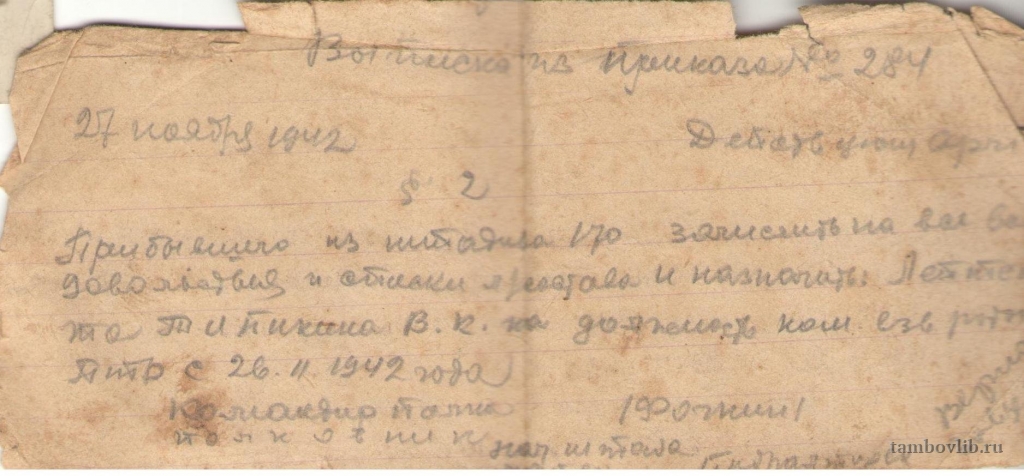 Выписка из приказа № 284
27 ноября 1942 Действующ арми
§ 2
Прибывшего из штадива 170 зачислить на все
довольствия и списки п/состава и назначить: Лейтен
та Типикина В.К. на должность ком взв роты
ПТР с 26.11 1942 года
Командир полка /Фочкин/
полковник
нач штаба
tambovlib.ru